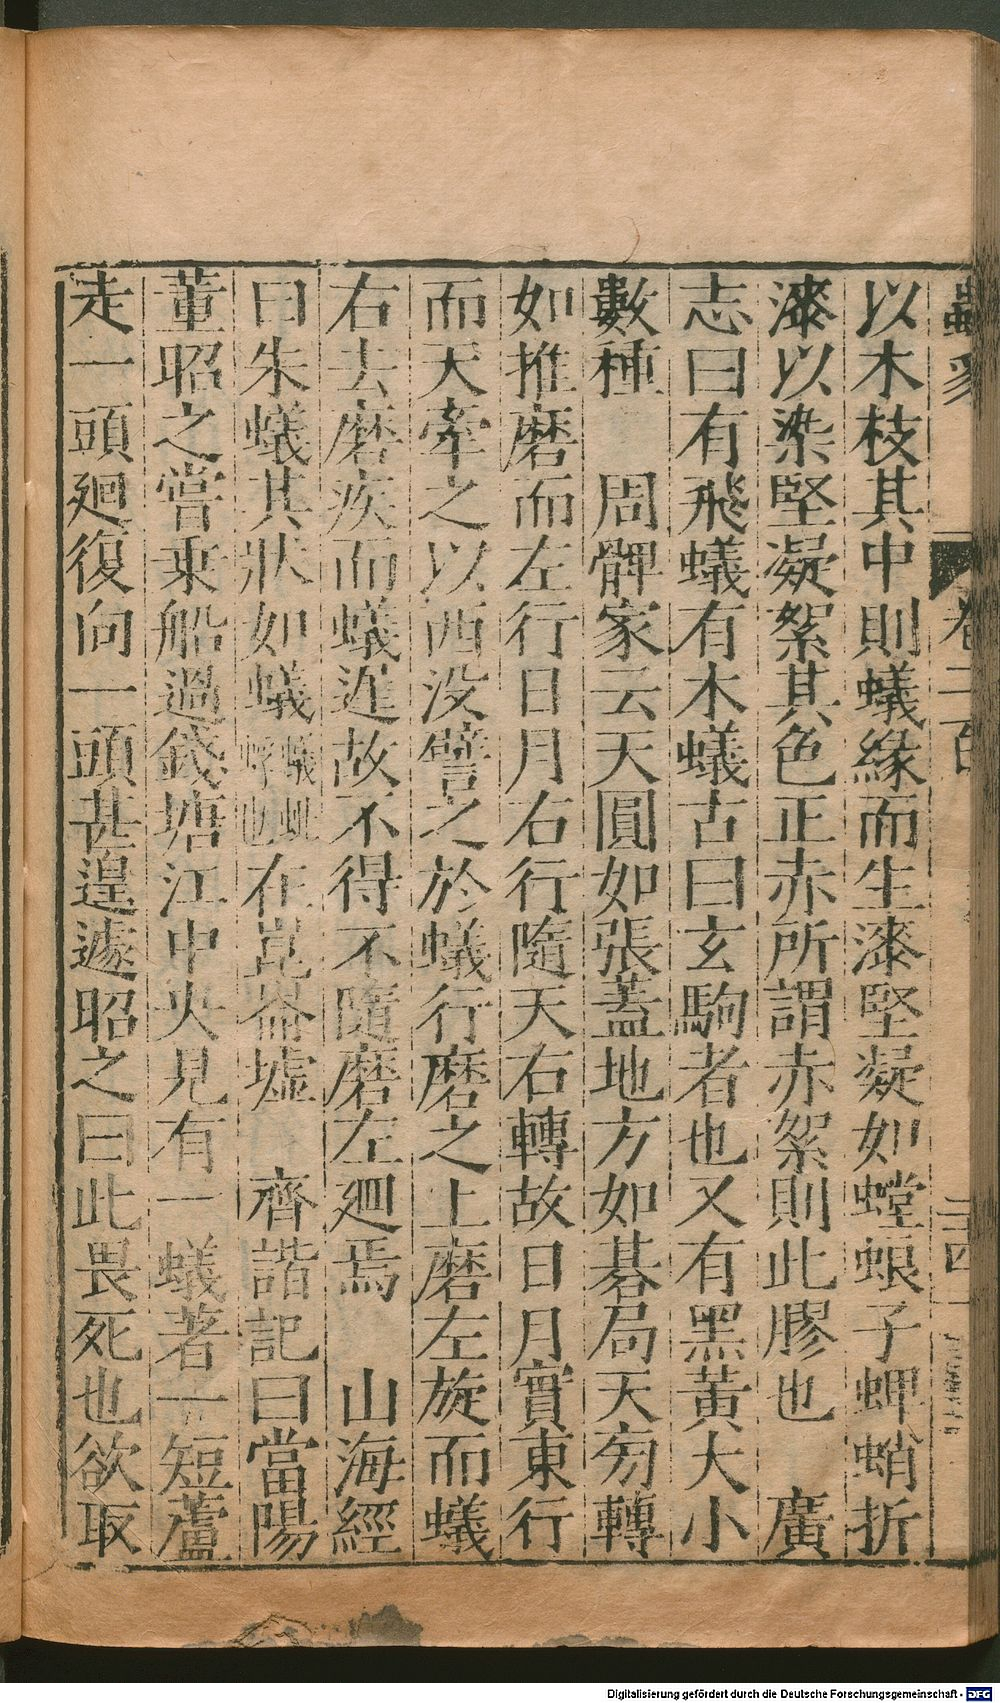 以木枝其中則蟻緣而生漆堅凝如螳蜋子蜱蛸折
漆以染堅凝絮其色正赤所謂赤絮則此膠也　廣
志曰有飛蟻有木蟻古曰玄駒者也又有黑黃大小
數種　周髀家云天圓如張蓋地方如碁局天旁轉
如推磨而左行日月右行隨天右轉故日月實東行
而天牽之以西没譬之於蟻行磨之上磨左旋而蟻
右去磨疾而蟻遲故不得不隨磨左廻焉　山海經
曰朱蟻其狀如蟻蟻蚍蜉也在崑崙墟　齊諧記曰當陽
董昭之嘗乗船過錢塘江中央見有一蟻著一短蘆
走一頭廻復向一頭甚遑遽昭之曰此畏死也欲取
卷二百
二十四
Digitalisierung gefördert durch die Deutsche Forschungsgemeinschaft - DFG